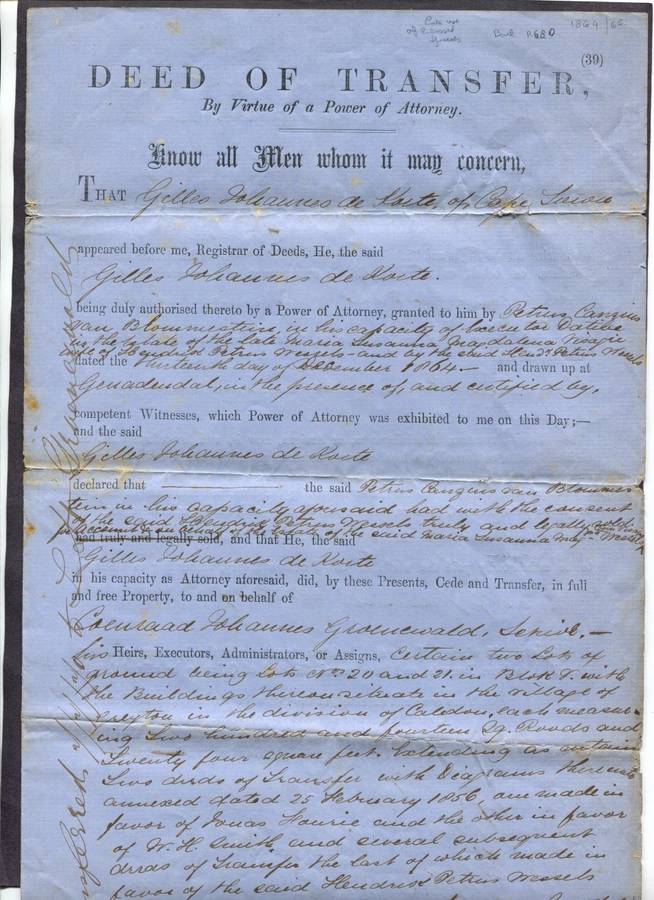 of
1864/65
(39)
DEED OF TRANSFER,
By Virtue of a Power of Attorney.
Know all Men whom it may concern,
THAT Gilles Johannes de Korte of Cape Town
appeared before me, Registrar of Deeds, He, the said
Gilles Johannes de Korte.
being duly authorised thereto by a Power of Attorney, granted to him by Petrus Cangius
van Blommestein, in his capacity of Executor Dative
in the Estate of the late Maria Susanna Magdalena
wife of Hendrik Petrus Wessels and by the said Hendk Petrus Wessels
dated the thirteenth day of December 1864 — and drawn up at
Genadendal, in the presence of, and certified by,
competent Witnesses, which Power of Attorney was exhibited to me on this Day;—
and the said
Gilles Johannes de Korte
declared that — the said Petrus Cangius van Blommes-
tein in his capacity aforesaid had with the consent
of the said Hendrik Petrus Wessels truly and legally sold
the Estate of the said Maria Susanna
had truly and legally sold, and that He, the said
Gilles Johannes de Korte
in his capacity as Attorney aforesaid, did, by these Presents, Cede and Transfer, in full
and free Property, to and on behalf of
Coenraad Johannes Groenewald, Senior. —
his Heirs, Executors, Administrators, or Assigns, Certain two Lots of
ground being Lots Nos 20 and 21. in Blok T. with
the Buildings thereon situate in the Village of
Greyton in the division of Caledon, each measur-
ing Two hundred and fourteen Sq. Roods and
Twenty four square feet. Extending as
Two deeds of Transfer with Diagrams thereunto
annexed dated 25 February 1856, one made in
favor of Jonas Fourie and the other in favor
of W. H. Smith, and several subsequent
deeds of Transfer the last of which made in
favor of the said Hendrik Petrus Wessels